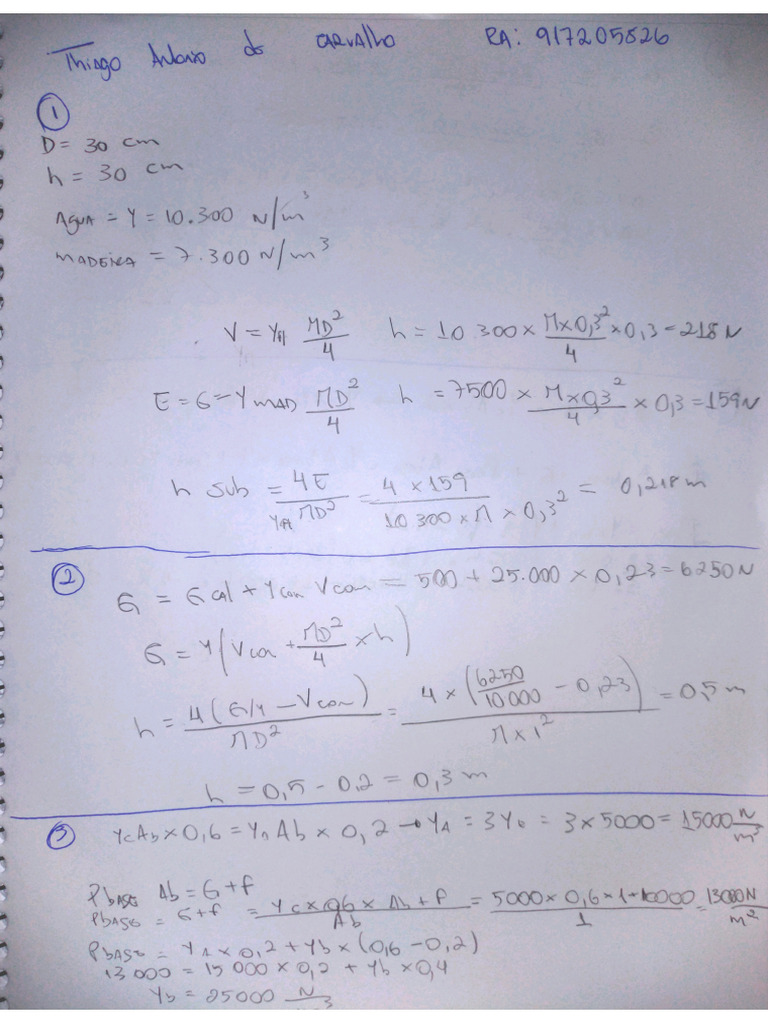 Thiago Antonio de CARVALHO RA: 917205826
1
D = 30 cm
h = 30 cm
AGUA = γ = 10.300 N/m³
MADEIRA = 7.300 N/m³
V = γA πD²/4 h = 10 300 × π×0,3²/4 × 0,3 = 218 N
E = G = γMAD πD²/4 h = 7500 × π×0,3²/4 × 0,3 = 159 N
h sub = 4E/γA πD² = 4 × 159/10 300 × π × 0,3² = 0,218 m
2
G = G cil + γcon Vcon = 500 + 25.000 × 0,23 = 6250 N
G = γ(Vcon + πD²/4 × h)
h = 4(G/γ - Vcon)/πD² = 4 × (6250/10 000 - 0,23)/π × 1² = 0,5 m
h = 0,5 - 0,2 = 0,3 m
3
γcAb × 0,6 = γA Ab × 0,2 → γA = 3γc = 3 × 5000 = 15000 N/m³
PBASE Ab = G + f
PBASE = G + f = γc × 0,6 × Ab + F/Ab = 5000 × 0,6 × 1 + 10000/1 = 13000 N/m²
PBASE = γA × 0,2 + γb × (0,6 - 0,2)
13 000 = 15 000 × 0,2 + γb × 0,4
γb = 25000 N/m³